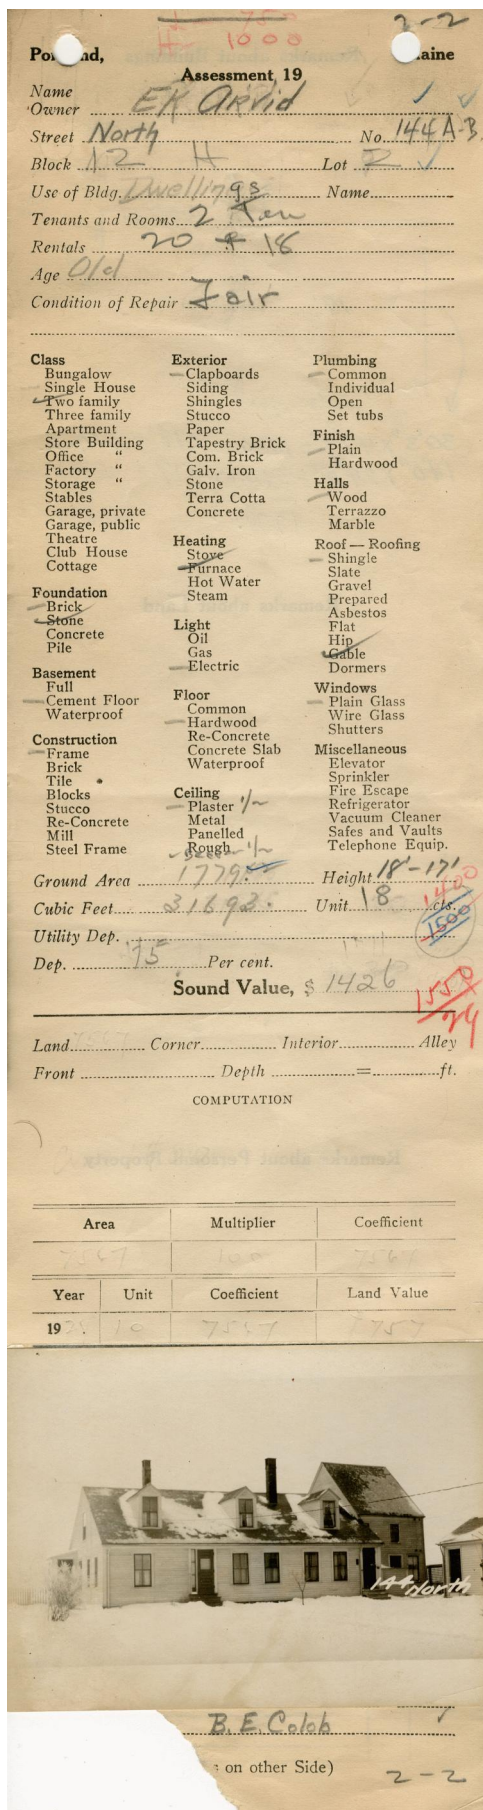 750
H 1000
2-2
Portland, Maine
Assessment, 19
Name
Owner EK Arvid
Street North No. 144 A-B
Block 12 H Lot
Use of Bldg. Dwellings Name
Tenants and Rooms 2 Ten
Rentals 20 + 18
Age Old
Condition of Repair Fair
Class
Bungalow
Single House
Two family
Three family
Apartment
Store Building
Office "
Factory "
Storage "
Stables
Garage, private
Garage, public
Theatre
Club House
Cottage
Foundation
Brick
Stone
Concrete
Pile
Basement
Full
Cement Floor
Waterproof
Construction
Frame
Brick
Tile
Blocks
Stucco
Re-Concrete
Mill
Steel Frame
Exterior
Clapboards
Siding
Shingles
Stucco
Paper
Tapestry Brick
Com. Brick
Galv. Iron
Stone
Terra Cotta
Concrete
Heating
Stove
Furnace
Hot Water
Steam
Light
Oil
Gas
Electric
Floor
Common
Hardwood
Re-Concrete
Concrete Slab
Waterproof
Ceiling
Plaster
Metal
Panelled
Rough
Plumbing
Common
Individual
Open
Set tubs
Finish
Plain
Hardwood
Halls
Wood
Terrazzo
Marble
Roof — Roofing
Shingle
Slate
Gravel
Prepared
Asbestos
Flat
Hip
Gable
Dormers
Windows
Plain Glass
Wire Glass
Shutters
Miscellaneous
Elevator
Sprinkler
Fire Escape
Refrigerator
Vacuum Cleaner
Safes and Vaults
Telephone Equip.
Ground Area 1779. Height 18'-17'
1400
Cubic Feet 31693. Unit 18 cts.
1500
Utility Dep.
Dep. 75 Per cent.
Sound Value, $ 1426
1550
Land Corner Interior Alley
Front Depth = ft.
COMPUTATION
Area Multiplier Coefficient
7567 100 7567
Year Unit Coefficient Land Value
19 10 7567
144 North
B. E. Colob
on other Side)
2-2